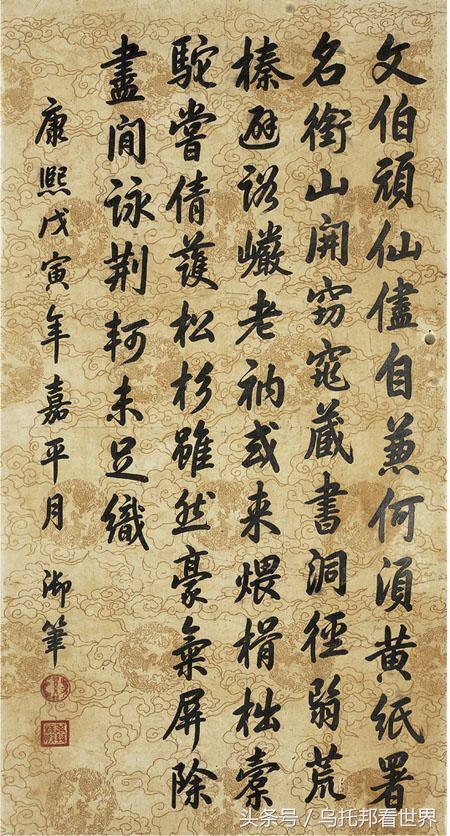 文伯頑仙儘自兼何須黃紙署
名銜山開窈窕藏書洞徑荒
榛避巖老衲或来煨榾柮橐
駝嘗倩護松杉雖然豪氣屏除
盡閒詠荊軻未足織
康熙戊寅年嘉平月 御筆
头条号/乌托邦看世界